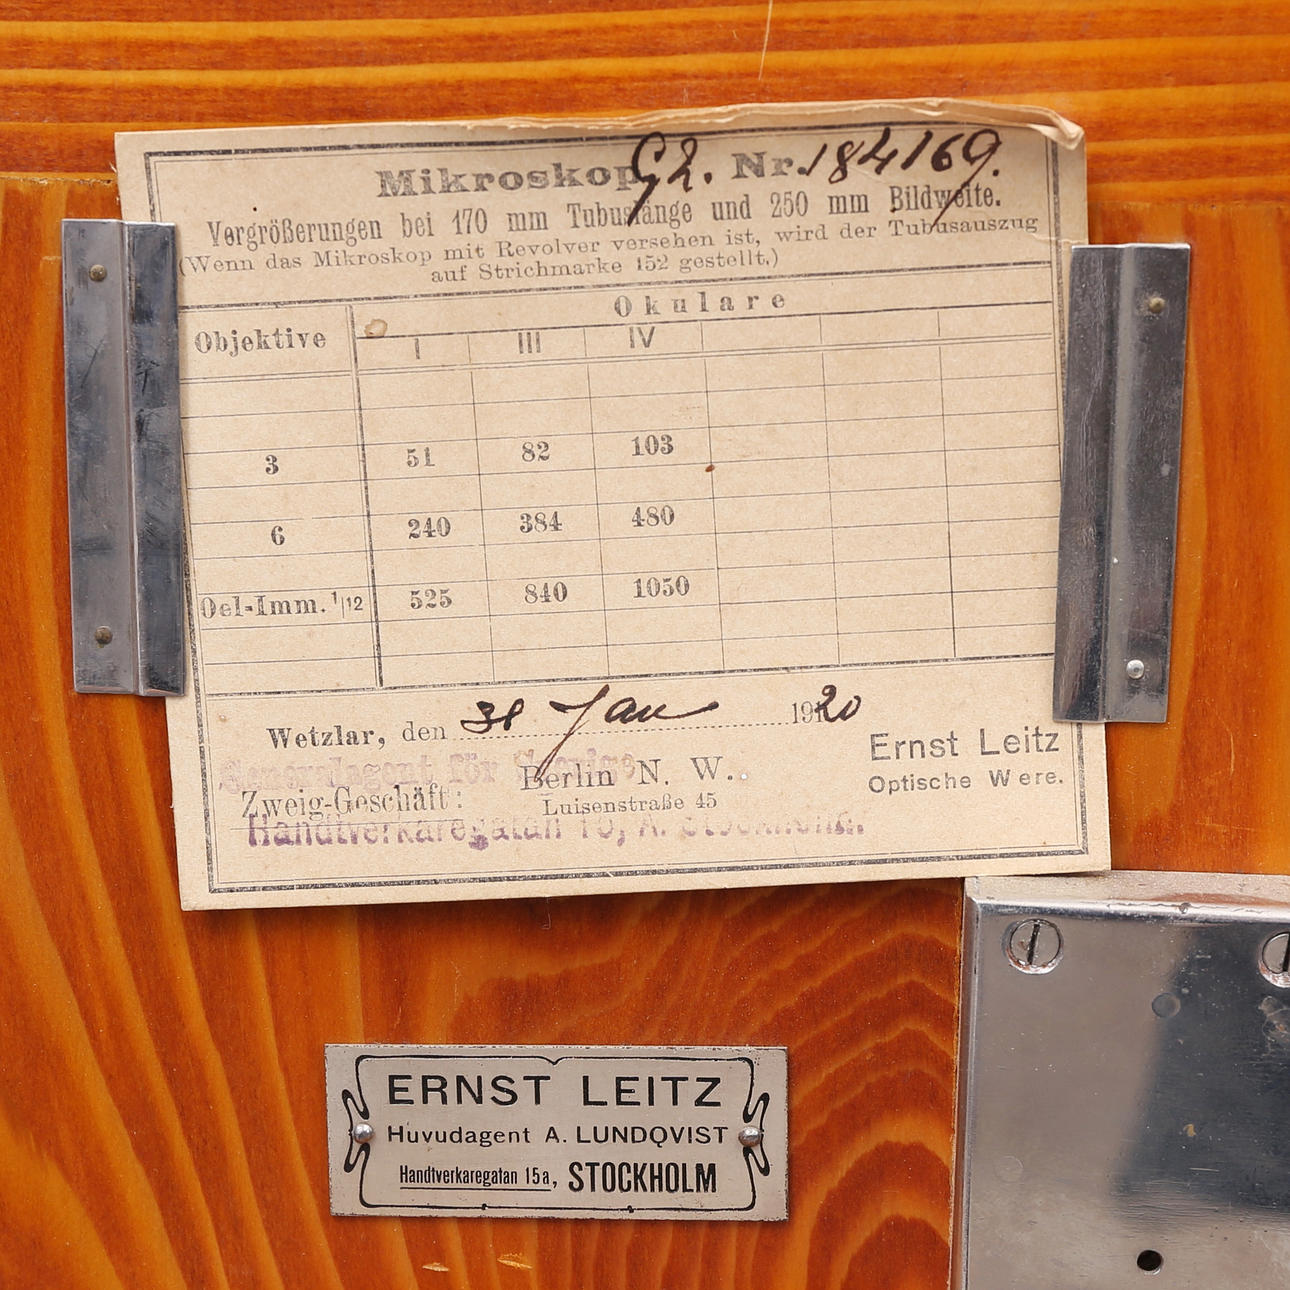 Mikroskop G2. Nr. 184169.
Vergrößerungen bei 170 mm Tubuslänge und 250 mm Bildweite.
(Wenn das Mikroskop mit Revolver versehen ist, wird der Tubusauszug
auf Strichmarke 152 gestellt.)
Okulare
Objektive I III IV
3 51 82 103
6 240 384 480
Oel-Imm. 1/12 525 840 1050
Wetzlar, den 31 Jan 1920
Ernst Leitz
Optische Were.
Generalagent för Sverige
Zweig-Geschäft: Berlin N. W.
Luisenstraße 45
Handtverkaregatan 15, A. Stockholm.
ERNST LEITZ
Huvudagent A. LUNDQVIST
Handtverkaregatan 15a, STOCKHOLM